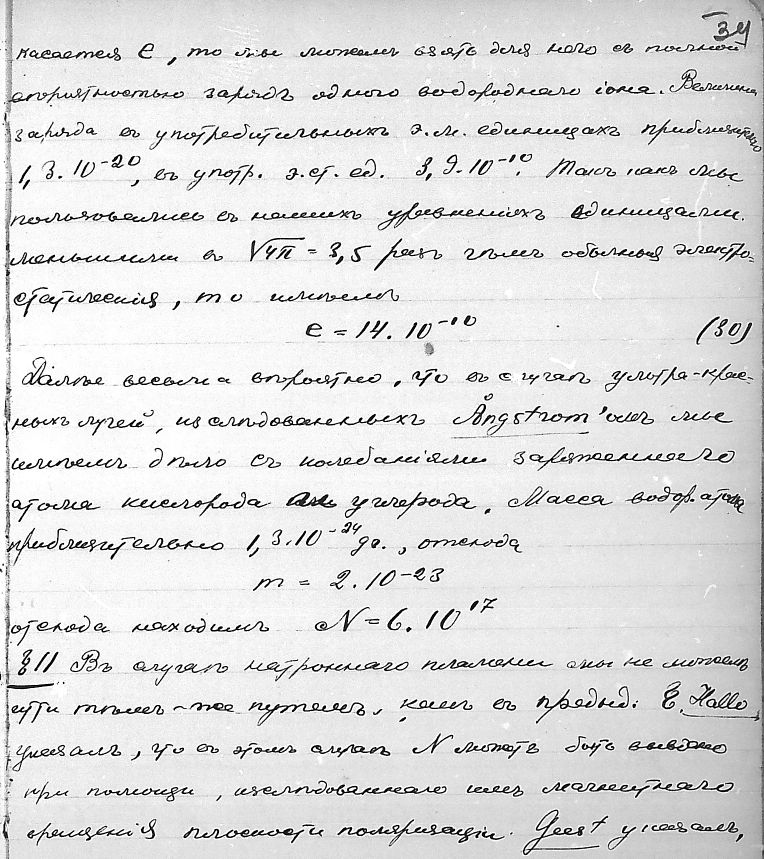 34
касается e, то мы можемъ взять для него съ полной
вѣроятностью зарядъ одного водороднаго іона. Величина
заряда въ употребительныхъ э.м. единицахъ приблизительно
1,3.10⁻²⁰, въ употр. э.ст. ед. 3,9.10⁻¹⁰. Такъ какъ мы
пользовались въ нашихъ уравненіяхъ единицами
меньшими въ √4π = 3,5 разъ чѣмъ обычныя электро=
статическія, то имѣемъ
e = 14.10⁻¹⁰ (30)
Далѣе весьма вѣроятно, что въ случаѣ ультра-крас=
ныхъ лучей, изслѣдованныхъ Ångström'омъ мы
имѣемъ дѣло съ колебаніями заряженнаго
атома кислорода или углерода. Масса водор. атома
приблизительно 1,3.10⁻²⁴ гр., отсюда
m = 2.10⁻²³
отсюда находимъ N = 6.10¹⁷
§11 Въ случаѣ натроннаго пламени мы не можемъ
идти тѣмъ-же путемъ, какъ въ предыд. Hallo
указалъ, что въ этомъ случаѣ N можетъ быть выведено
при помощи, изслѣдованнаго имъ магнитнаго
вращенія плоскости поляризаціи. Geest указалъ,